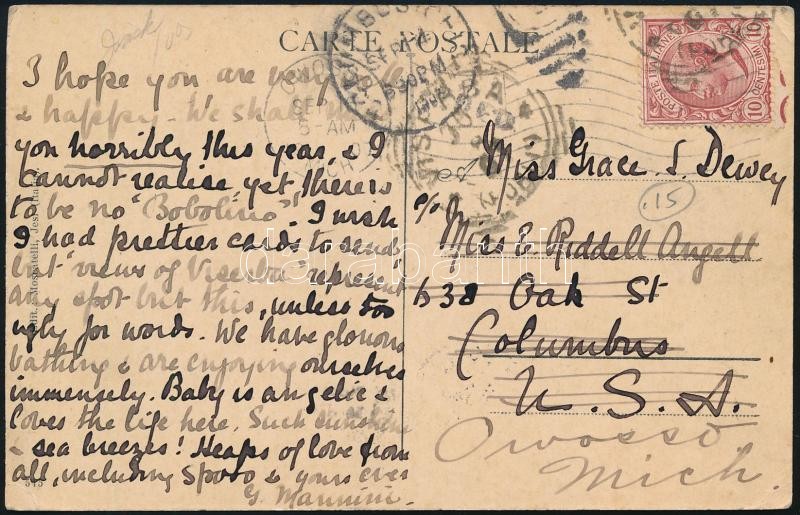 CARTE POSTALE
I hope you are very
& happy. We shall
you horribly this year, & I
cannot realise yet there is
to be no "Bobolino". I wish
I had prettier cards to send
but "views of Viserba" represent
any spot but this, unless too
ugly for words. We have glorious
bathing & are enjoying ourselves
immensely. Baby is angelic &
loves the life here. Such sunshine
& sea breezes! Heaps of love from
all, including Spozo & yours ever
G. Mannini.
545
POSTE ITALIANE
10 CENTESIMI 10
Miss Grace S. Dewey
c/o
Miss E Riddell Angell
638 Oak St
Columbus
U. S. A.
Owosso,
Mich.
.15
darabanth